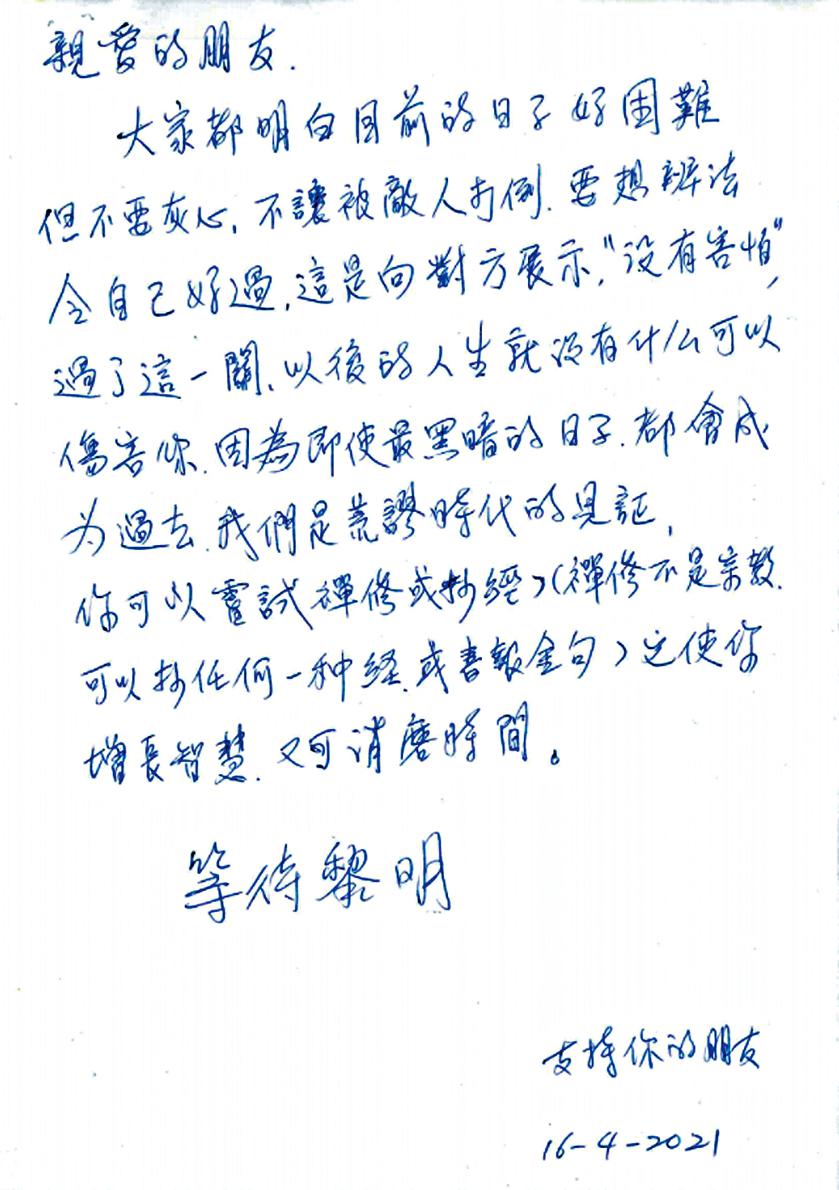 親愛的朋友.
大家都明白目前的日子好困難
但不要灰心, 不讓被敵人打倒. 要想辦法
令自己好過, 這是向對方展示, "没有害怕",
過了這一關, 以後的人生就没有什么可以
傷害你. 因為即使最黑暗的日子. 都會成
为過去. 我們是荒謬時代的見証,
你可以嘗試禪修或抄經 (禪修不是宗教.
可以抄任何一种経. 或書報金句) 這使你
增長智慧. 又可消磨時間。
等待黎明
支持你的朋友
16-4-2021